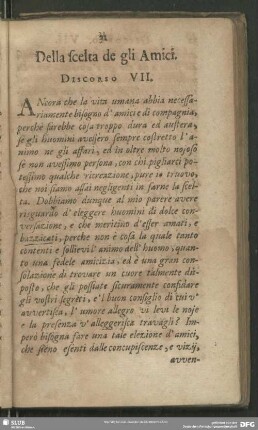 Della scelta de gli Amici.
DISCORSO VII.
ANcora che la vita umana abbia necessa-
riamente bisogno d'amici e di compagnia,
perche sarebbe cosa troppo dura ed austera,
se gli huomini avessero sempre costretto l'a-
nimo ne gli affari, ed in oltre molto nojoso
se non avessimo persona, con chi pigliarci po-
tessimo qualche ricreazione, pure io truovo,
che noi siamo assai negligenti in farne la scel-
ta. Dobbiamo dunque al mio parere avere
risguardo d'eleggere huomini di dolce con-
versazione, e che meritino d'esser amati, e
bazzicati, perche non è cosa la quale tanto
contenti e sollievi l'animo dell'huomo, quan-
to una fedele amicizia, ed è una gran con-
solazione di trovare un cuore talmente dis-
posto, che gli possiate sicuramente confidare
gli vostri segreti, e'l buon consiglio di cui v'
avvertisca, l'umore allegro vi levi le noje
e la presenza v'alleggerisca travagli? Im-
però bisogna fare una tale elezione d'amici,
che sieno esenti dalle concupiscenze, e vizij,
avven-
SLUB
DFG